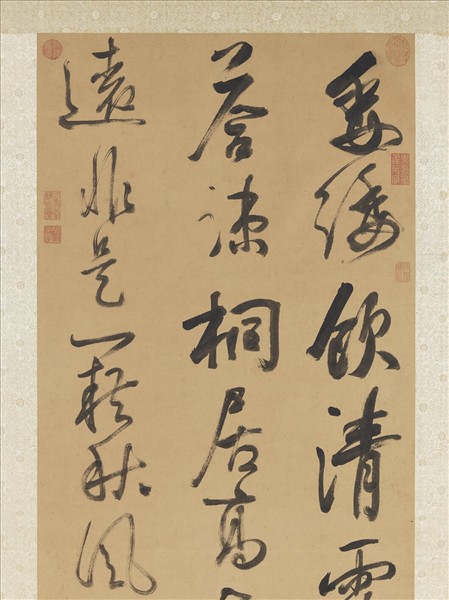 委緌飲清露
荅疎桐居高
遠非是藉秋風